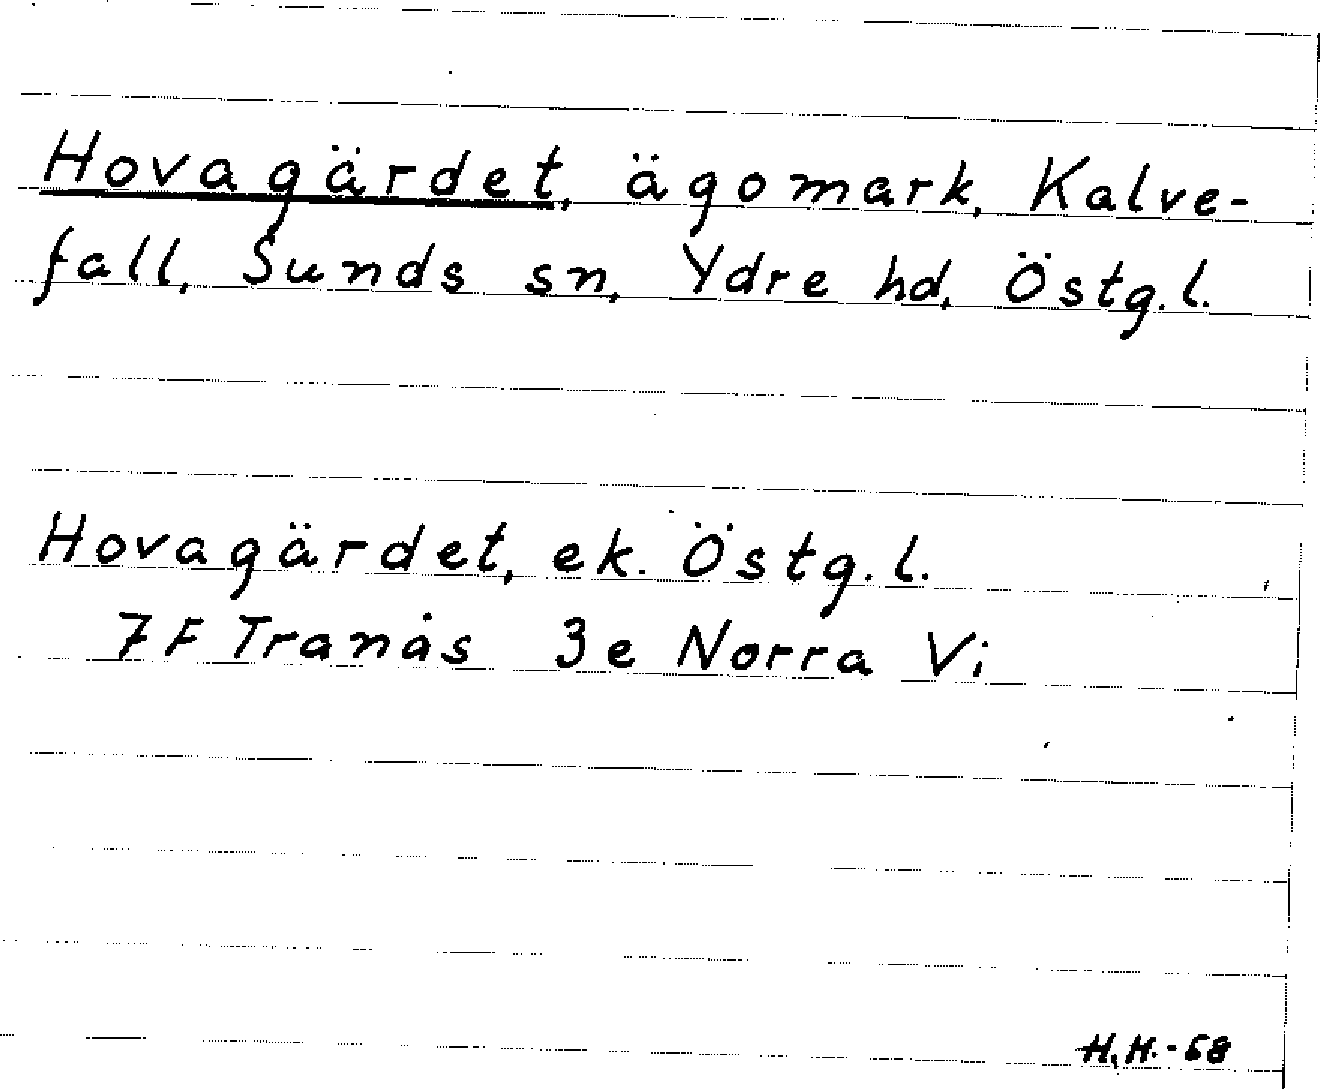 Hovagärdet, ägomark, Kalve-
fall, Sunds sn, Ydre hd, Östg.l.
Hovagärdet, ek. Östg.l.
7F Tranås 3e Norra Vi
H.H.-58